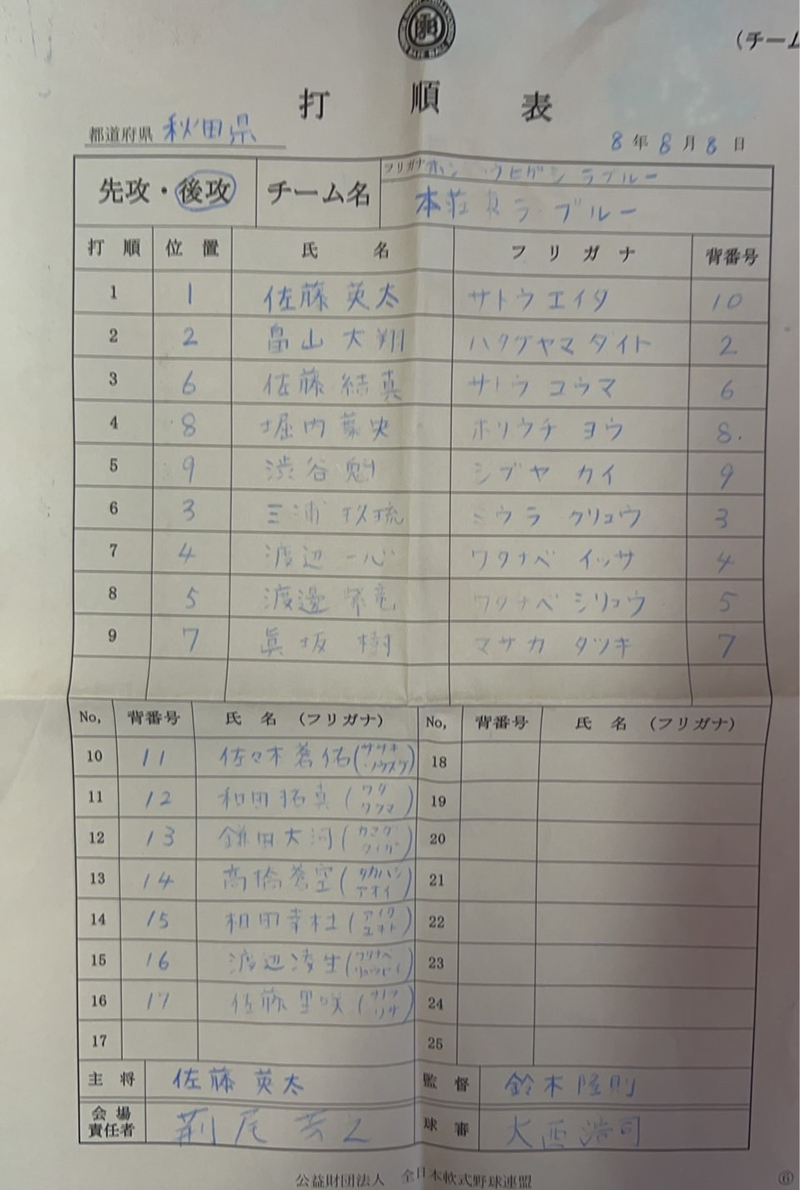 (チーム
打順表
都道府県 秋田県
8年8月8日
先攻・後攻 チーム名 フリガナ ラブルー
本荘 ラ・ブルー
打順 位置 氏名 フリガナ 背番号
1 1 佐藤英太 サトウエイタ 10
2 2 畠山大翔 ハタケヤマ ダイト 2
3 6 佐藤結真 サトウ ユウマ 6
4 8 堀内葉央 ホリウチ ヨウ 8
5 9 渋谷魁 シブヤ カイ 9
6 3 三浦玖琉 ミウラ クリュウ 3
7 4 渡辺一心 ワタナベ イッサ 4
8 5 渡邊紫竜 ワタナベ シリュウ 5
9 7 眞坂樹 マサカ タツキ 7
No, 背番号 氏名(フリガナ) No, 背番号 氏名(フリガナ)
10 11 佐々木蒼佑(ササキ ソウスケ) 18
11 12 和田拓真(ワダ タクマ) 19
12 13 鎌田大河(カマダ タイガ) 20
13 14 高橋蒼空(タカハシ アオイ) 21
14 15 相田幸杜(アイタ ユキト) 22
15 16 渡辺凌生(ワタナベ) 23
16 17 佐藤里咲(サトウ リサ) 24
17 25
主将 佐藤英太 監督 鈴木隆則
会場責任者 球審 大西浩司
公益財団法人 全日本軟式野球連盟
⑥